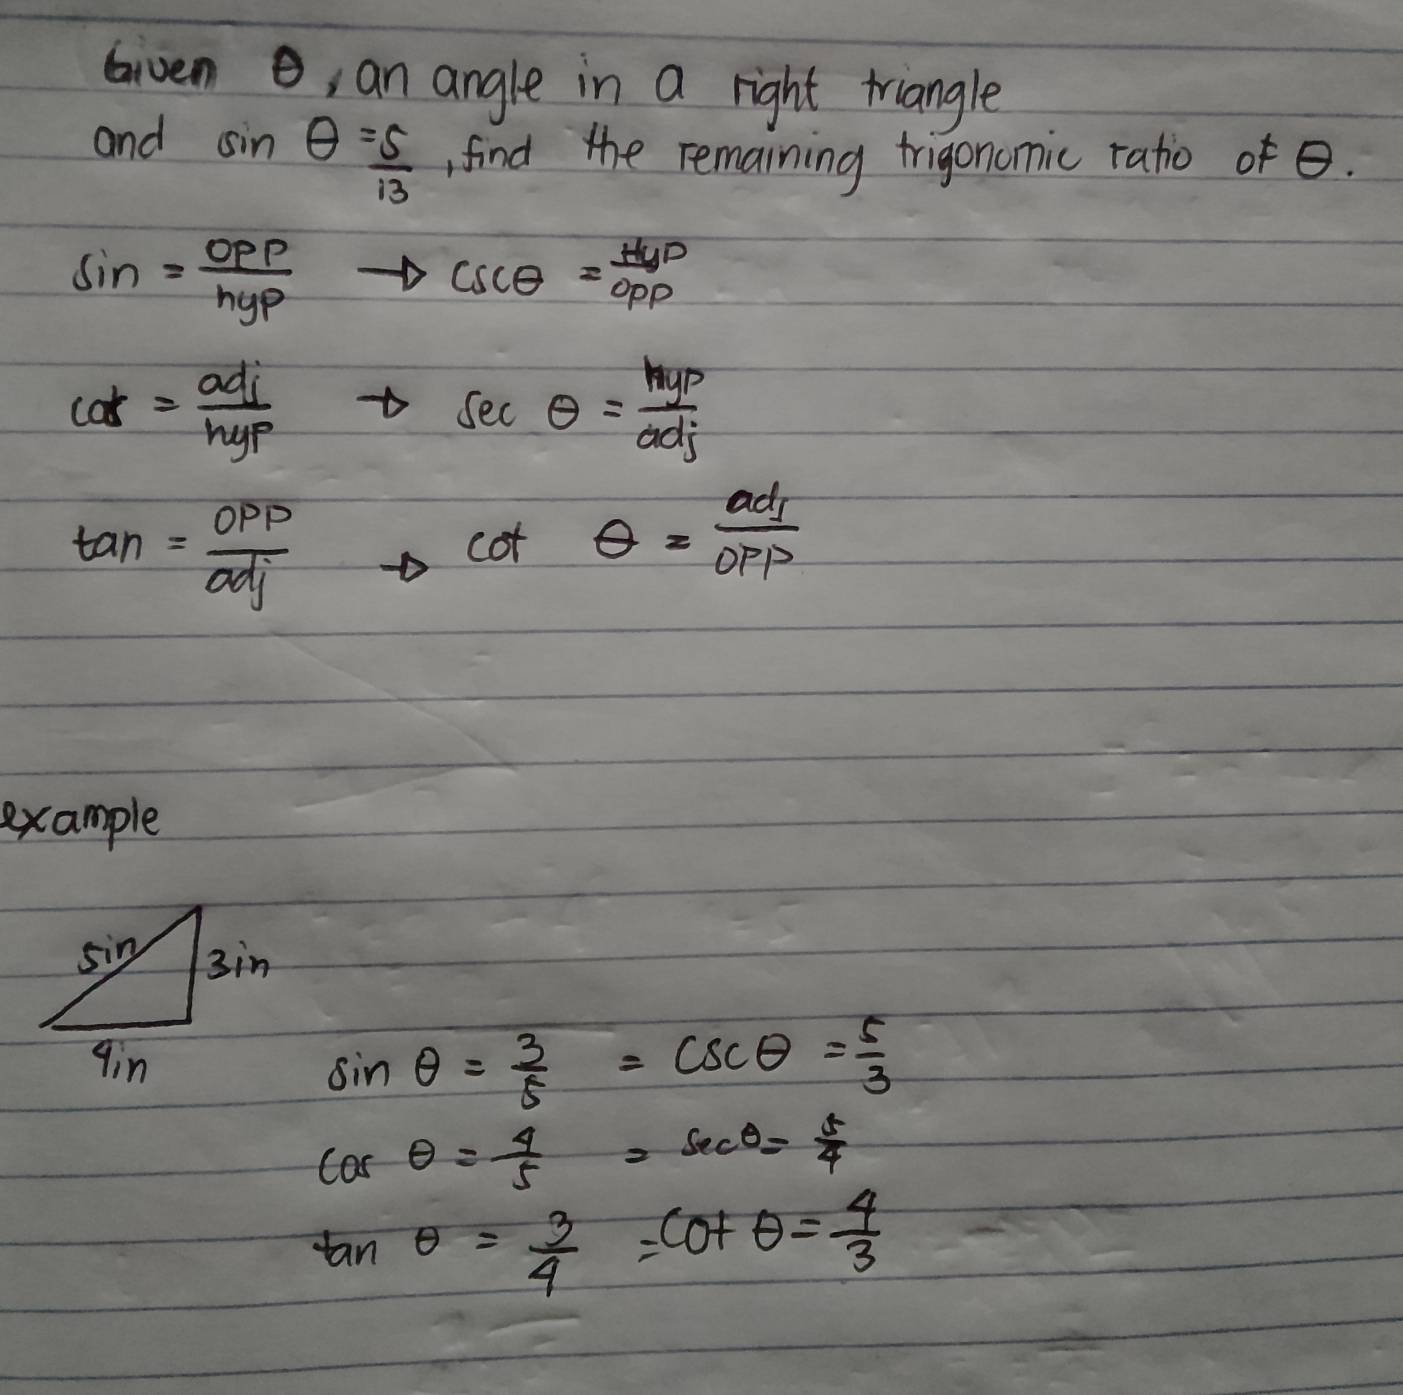 Given θ, an angle in a right triangle
and sin θ = 5/13, find the remaining trigonomic ratio of θ.
sin = opp/hyp → cscθ = Hyp/opp
cos = adj/hyp → sec θ = hyp/adj
tan = opp/adj → cot θ = adj/opp
example
5in
3in
4in
sin θ = 3/5 = cscθ = 5/3
cos θ = 4/5 = secθ = 5/4
tan θ = 3/4 = cot θ = 4/3